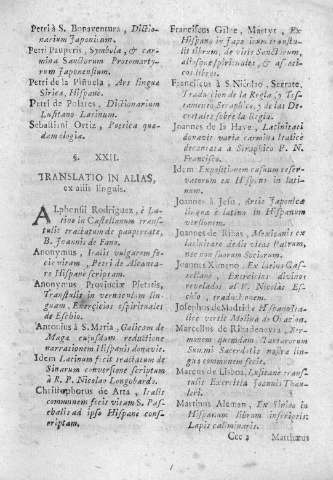 Petri à S. Bonaventura, Dictio-
narium Japonicum.
Petri Pauperis, Symbola, & car-
mina Sanctorum Protomarty-
rum Japonensium.
Petri de la Piñuela, Ars lingua
Sinica, Hispane.
Petri de Polares, Dictionarium
Lusitano Latinum.
Sebastiani Ortiz, Poetica qua-
dam
§. XXII.
TRANSLATIO IN ALIAS,
ex aliis linguis.
Alphonsii Rodriguez, è La-
tino in Castellanum trans-
tulit tractatum de paupertate,
B. Joannis de Fano.
Anonymus, Italis vulgarem fe-
cit vitam, Petri de Alcanta-
ra Hispane scriptam.
Anonymus Provinciæ Pietatis,
Transtulit in vernaculam lin-
guam, Exercicios espirituales
de Eschio.
Antonius à S. Maria, Galicam de
Maga cujusdam reductione
narrationem Hispanis donavit.
Idem Latinum fecit tractatum de
Sinarum conversione scriptum
à R. P. Nicolao Longobardo.
Christophorus de Arta, Italis
communem fecit vitam S. Pas-
chalis ad ipso Hispane cons-
criptam.
Franciscus Gilbe, Martyr, Ex
Hispano in Japonicum transtu-
lit librum, de vitis Sanctorum,
aliosque spirituales, & ascæti-
cos libros.
Franciscus à S. Nicolao, Serrate,
Traducion de la Regla, y Tes-
tamento Seraphico, y de las De-
cretales sobre la Regla.
Joannes de la Haye, Latinitati
donavit varia carmina Italicè
decantata à Seraphico P. N.
Francisco.
Idem Expositionem casuum reser-
vatorum ex Hispano in lati-
num.
Joannes à Jesu, Artis Japonicæ
linguæ è latino in Hispanum
versionem.
Joannes de Ribas, Mexicanis ex
latinitate dedit vitas Patrum,
nec non suorum Sociorum.
Joannes Ximeno, Ex latino Cas-
tellano, Exercicios divinos
revelados al V. Nicolas Es-
chio, traduxionem.
Josephus de Madrid è Hispano Ita-
lice vertit Mystica de Oracion.
Marcellus de Ribadeneira, Ser-
monem quendam Tartarorum
Summi Sacerdotis nostra lin-
gua communem fecit.
Marcus de Lisboa, Lusitane trans-
tulit Exercitia Joannis Thau-
leri.
Martinus Aleman, Ex Sinico in
Hispanum librum inferioris:
Lapis caliminaris.
Ccc 2 Matthæus